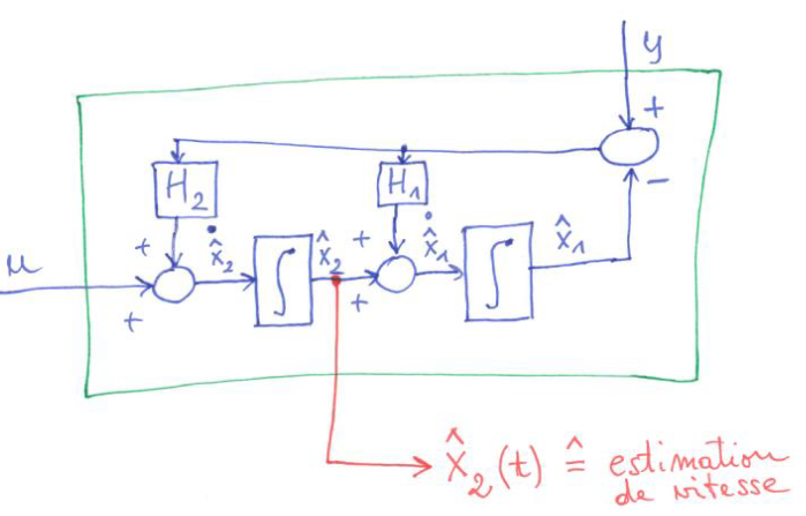 y
+
H₂
H₁
−
+
ẋ̂₂
x̂₂
+
ẋ̂₁
x̂₁
u
∫
∫
+
+
x̂₂(t) ≙ estimation
de vitesse